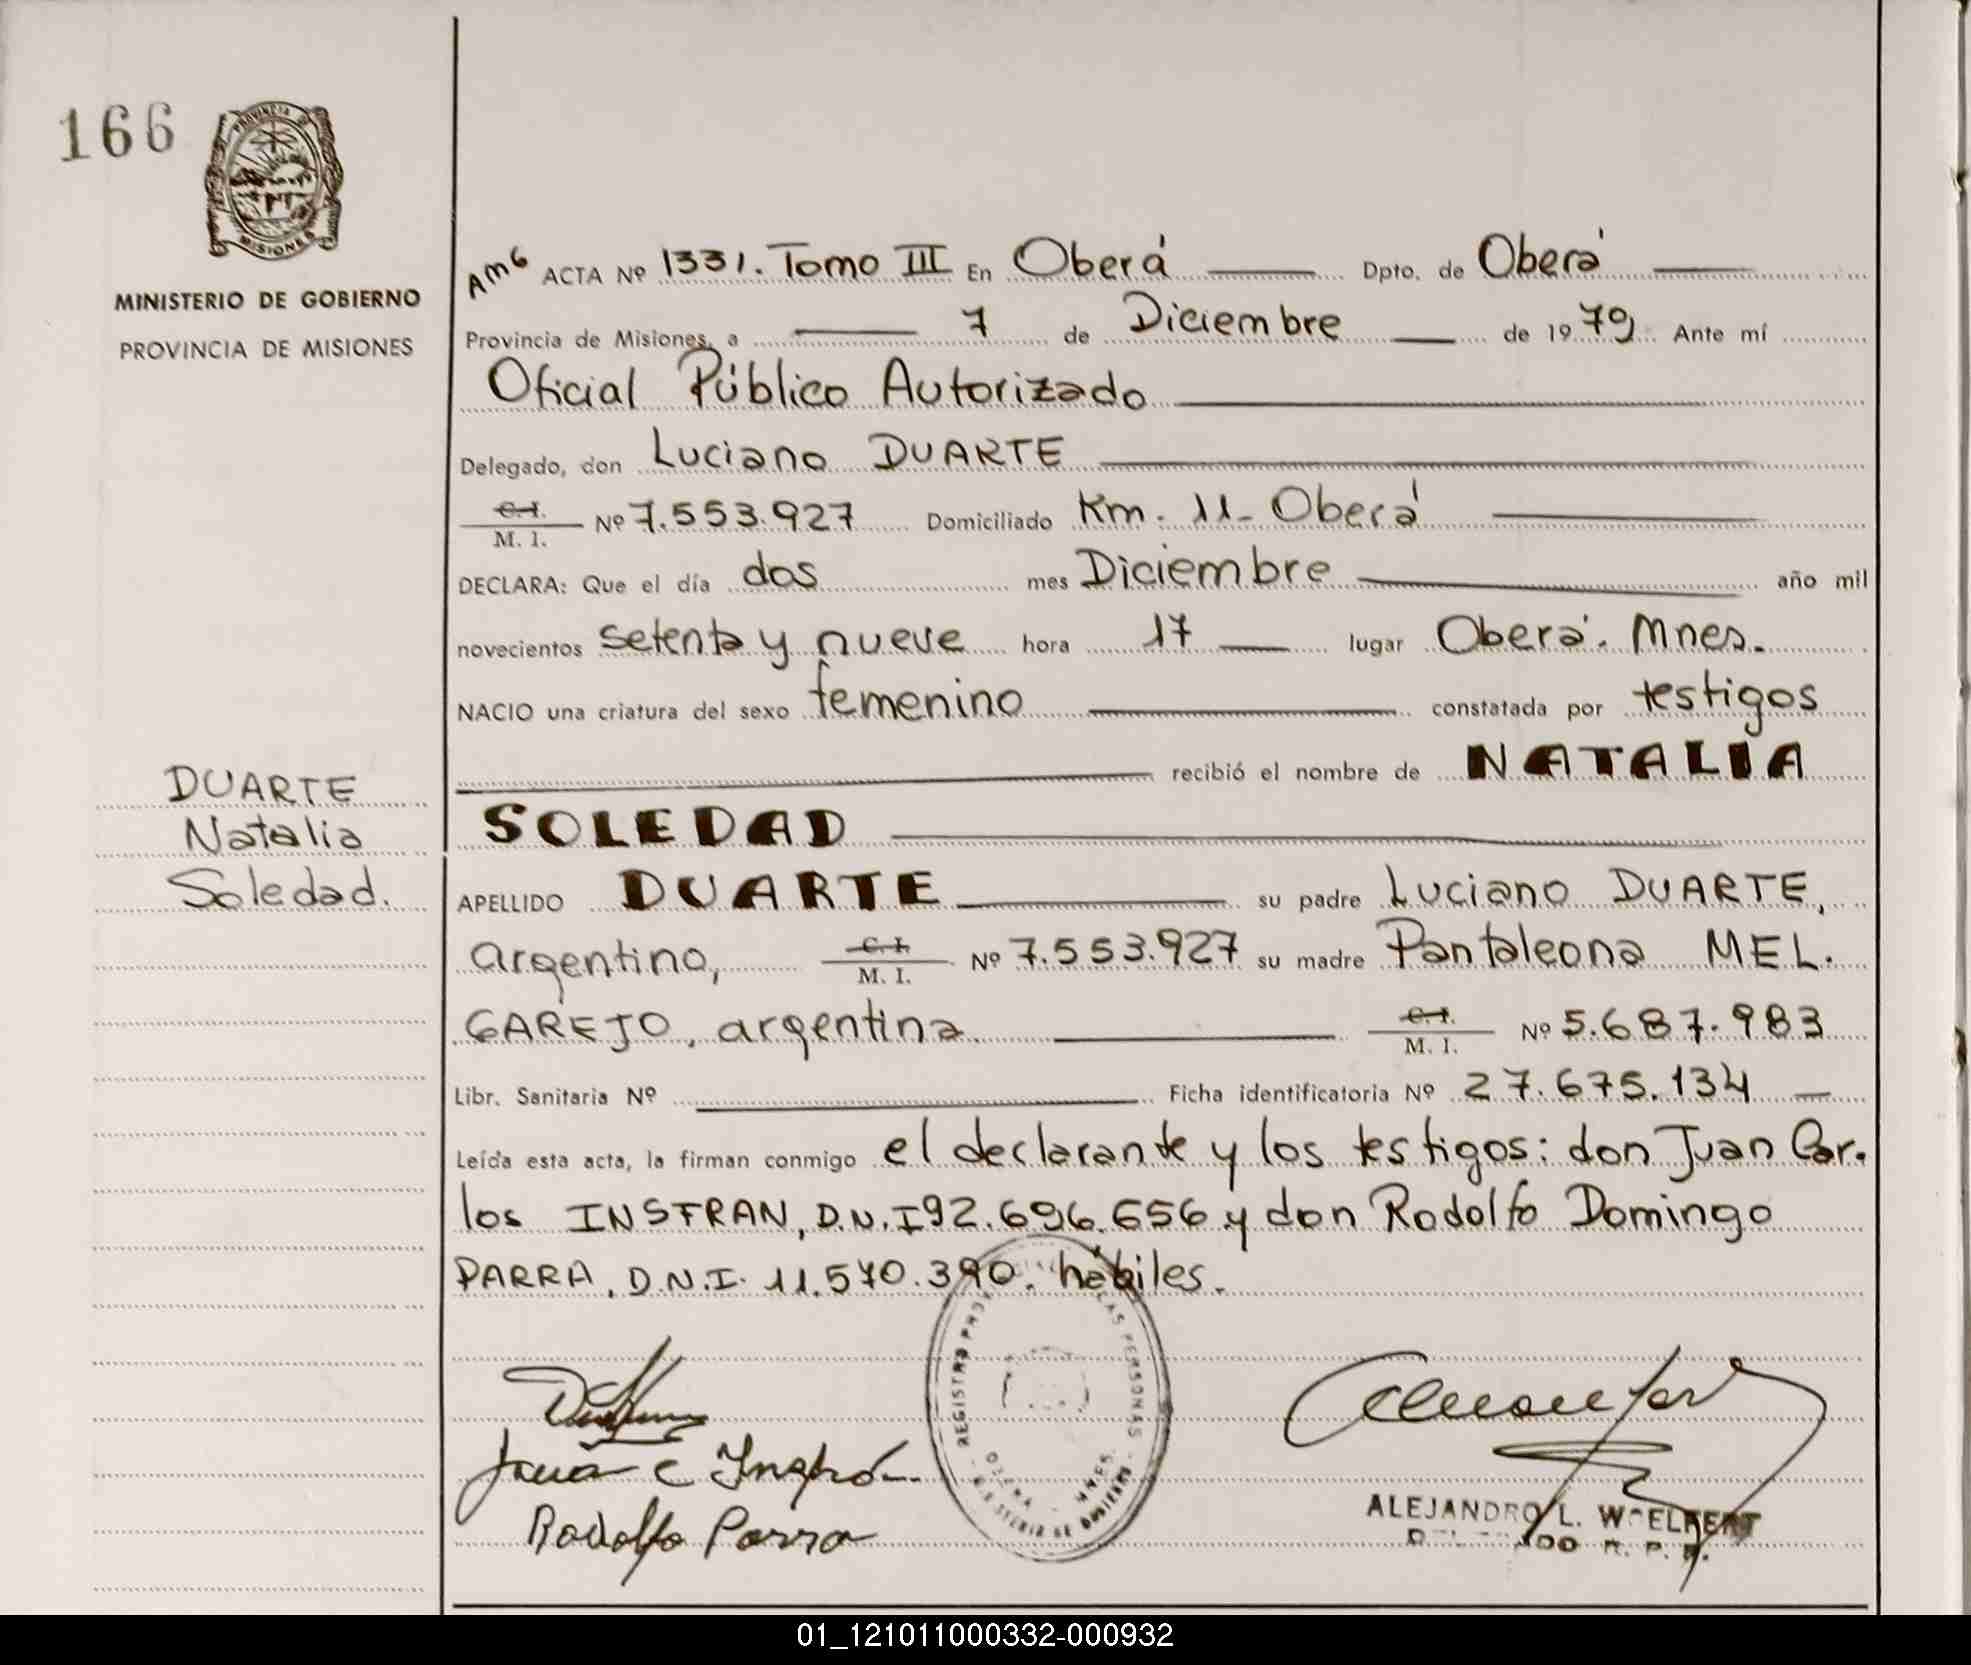 166
PROVINCIA DE
MISIONES
MINISTERIO DE GOBIERNO
PROVINCIA DE MISIONES
DUARTE
Natalia
Soledad.
AmG ACTA Nº 1331. Tomo III En Oberá Dpto. de Oberá
Provincia de Misiones, a 7 de Diciembre de 1979 Ante mí
Oficial Público Autorizado
Delegado, don Luciano DUARTE
C.I. M. I. Nº 7.553.927 Domiciliado Km. 11- Oberá
DECLARA: Que el día dos mes Diciembre año mil
novecientos setenta y nueve hora 17 lugar Oberá. Mnes.
NACIO una criatura del sexo femenino constatada por testigos
recibió el nombre de NATALIA
SOLEDAD
APELLIDO DUARTE su padre Luciano DUARTE,
argentino, C.I. M. I. Nº 7.553.927 su madre Pantaleona MEL.
GAREJO, argentina C.I. M. I. Nº 5.687.983
Libr. Sanitaria Nº Ficha identificatoria Nº 27.675.134
Leída esta acta, la firman conmigo el declarante y los testigos: don Juan Car.
los INSFRAN, D.N.I 92.696.656 y don Rodolfo Domingo
PARRA, D.N.I. 11.570.390. hábiles.
REGISTRO LAS PERSONAS
OBERA - MNES.
MINISTERIO DE GOBIERNO
Rodolfo Parra
ALEJANDRO L.
01_121011000332-000932